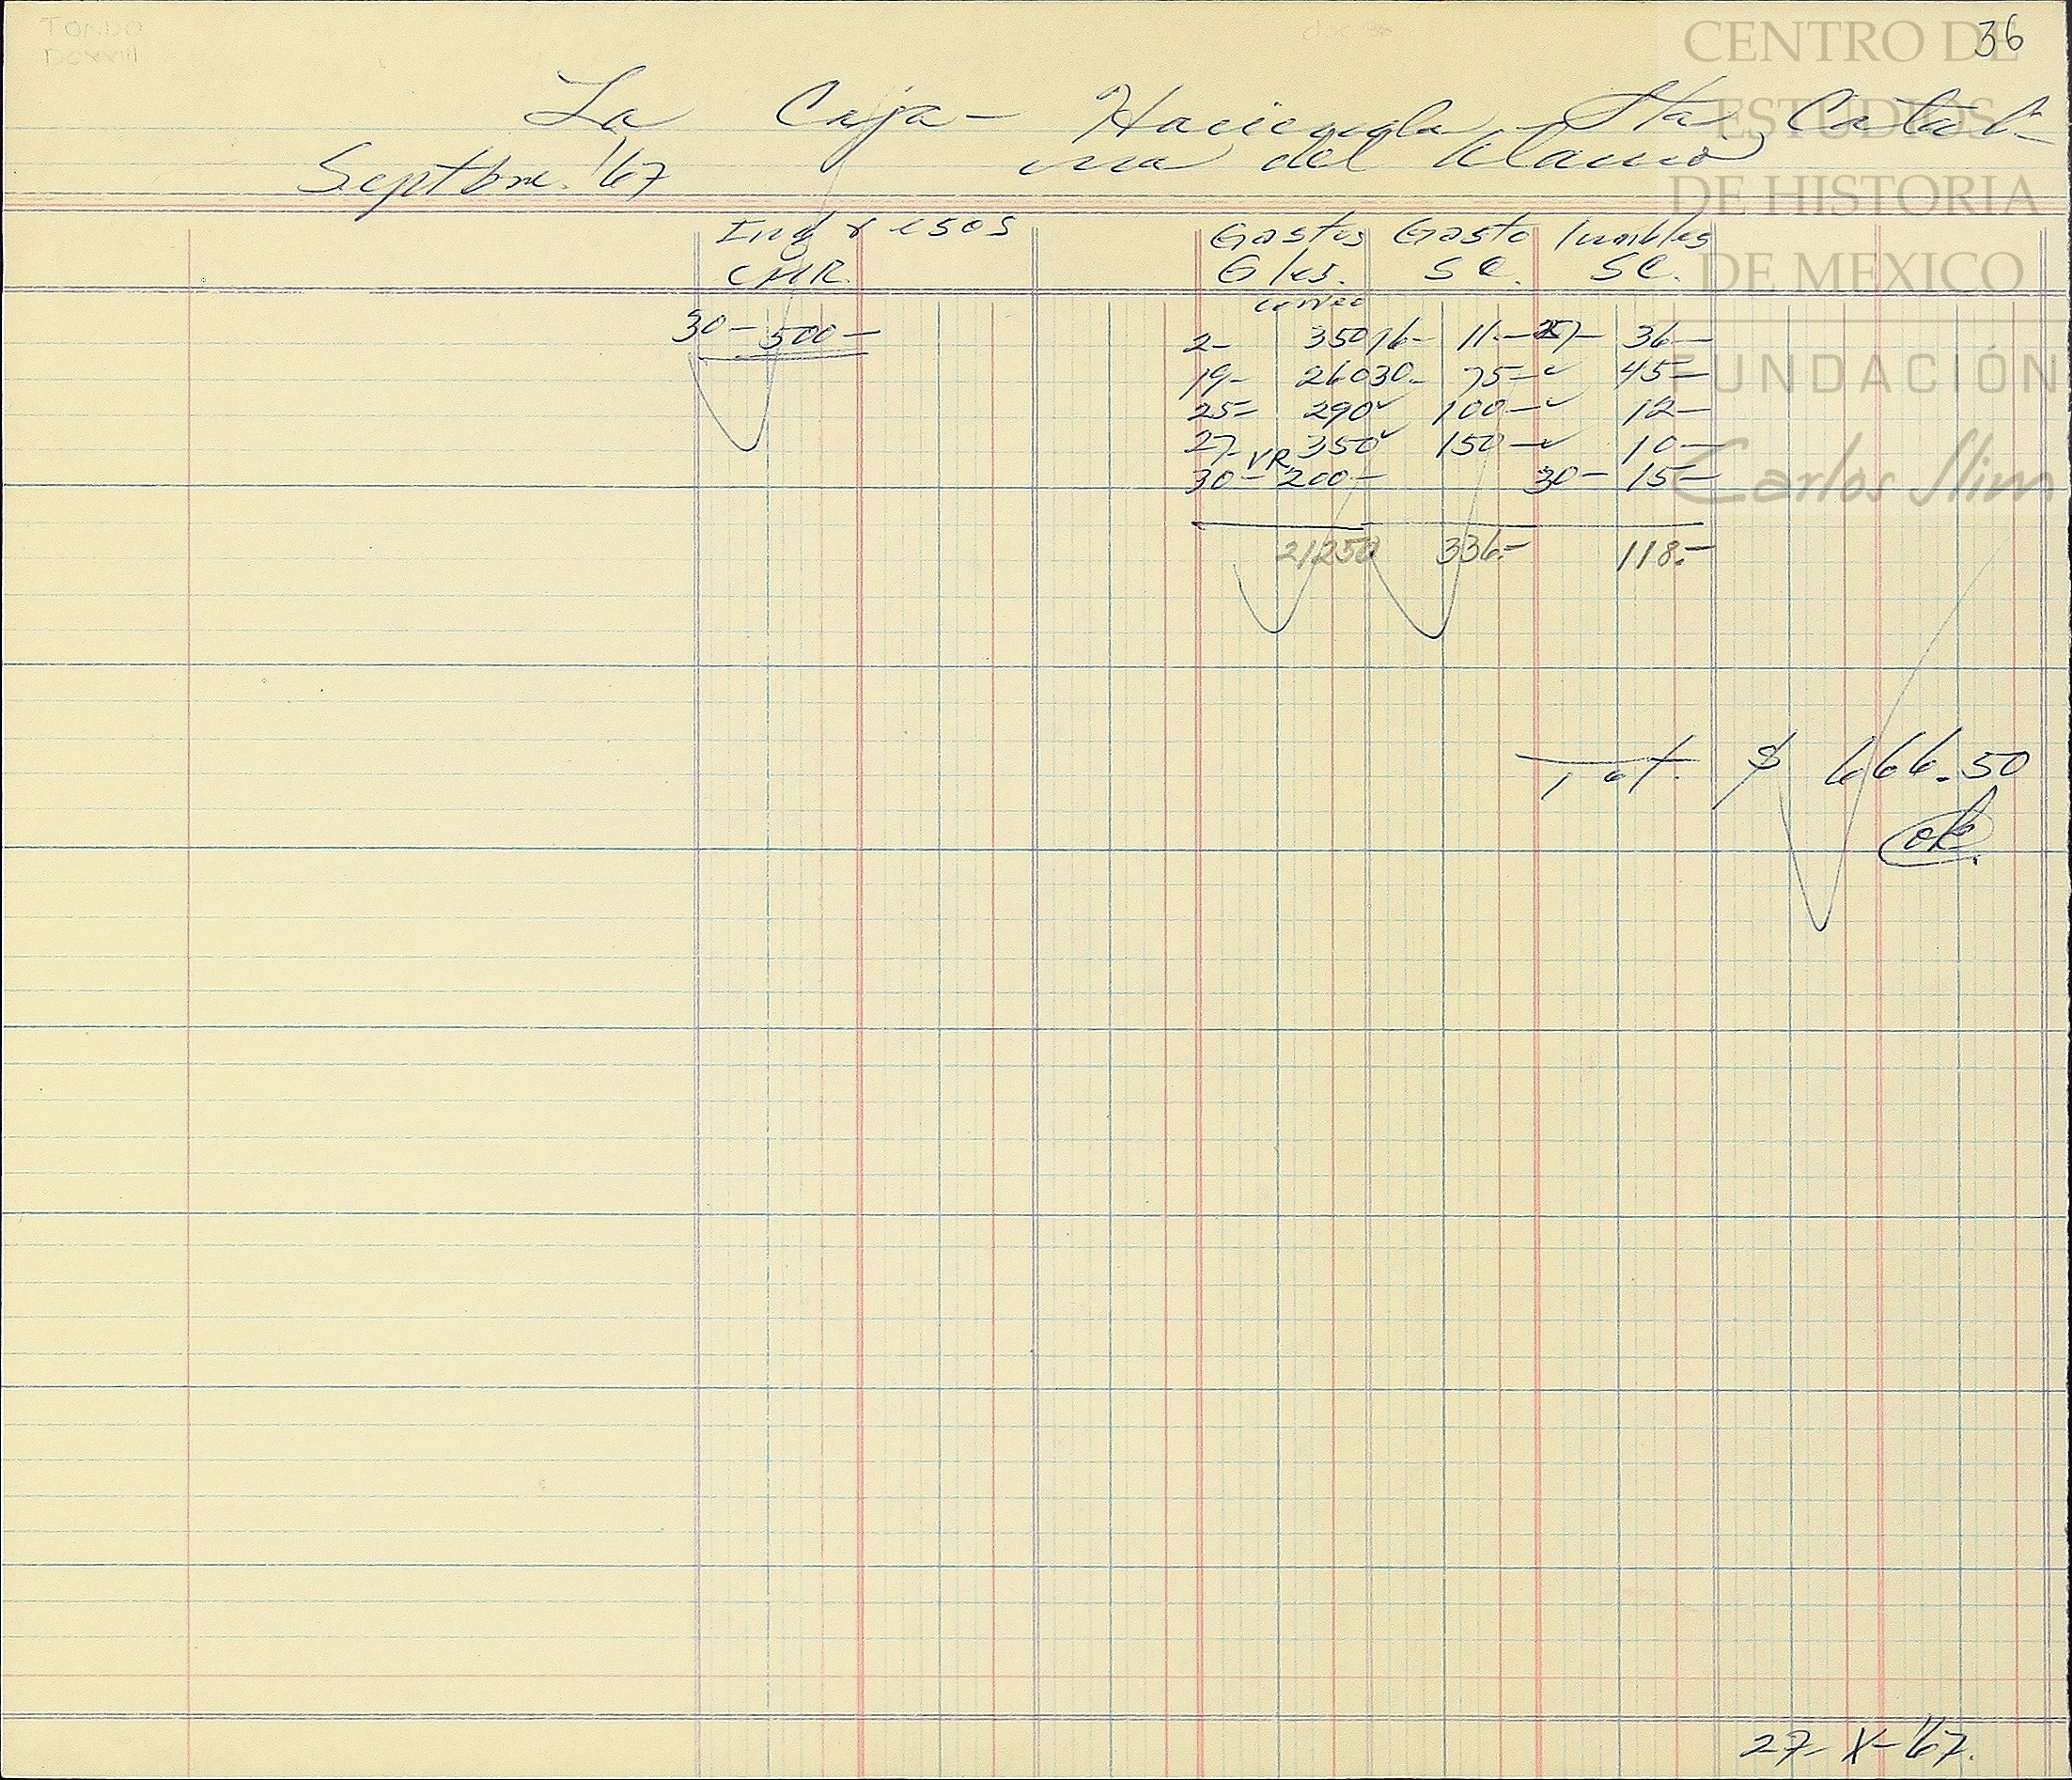 36
La Caja - Hacienda Sta. Catali-
na del Alamo
Septbre. '67
Ingresos Gastos Gasto Inmbles
CMR. Gles. S C. S C.
correo
30- 500- 2- 350 16- 11.- 27- 36-
19- 260 30- 75- 45-
25- 290 100- 12-
27- 350 150- 10-
VR
30- 200- 30- 15-
21250 336.- 118.-
Tot. $ 666.50
ok.
27- X- '67.
CENTRO DE
ESTUDIOS
DE HISTORIA
DE MEXICO
FUNDACIÓN
Carlos Slim